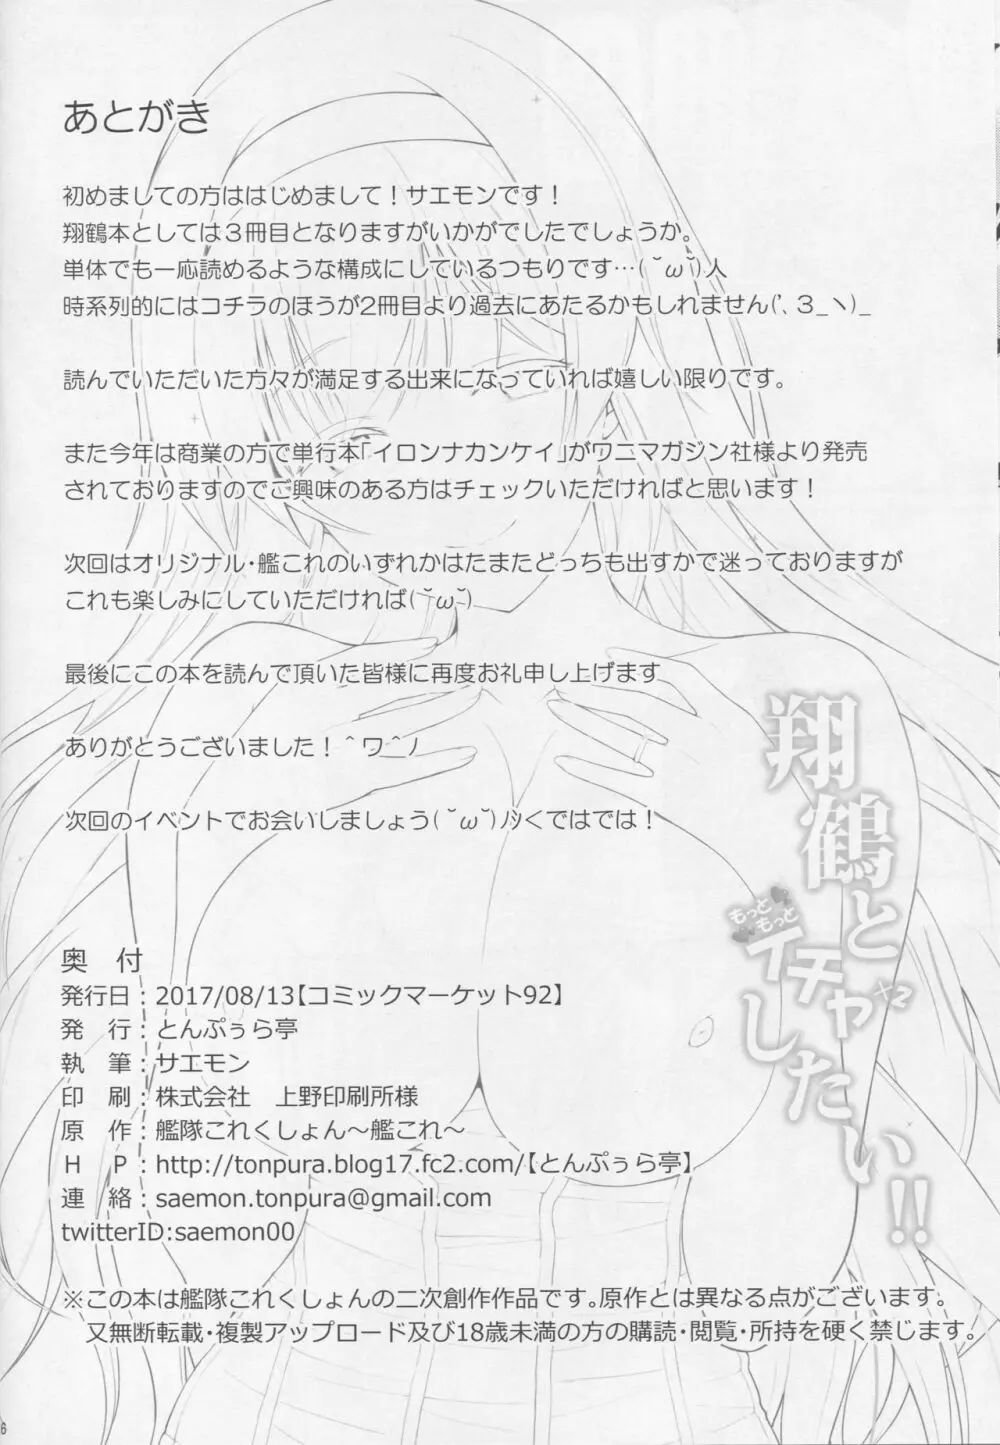 あとがき
初めましての方ははじめまして！サエモンです！
翔鶴本としては３冊目となりますがいかがでしたでしょうか。
単体でも一応読めるような構成にしているつもりです…(˘ω˘)人
時系列的にはコチラのほうが2冊目より過去にあたるかもしれません('、３_ヽ)_
読んでいただいた方々が満足する出来になっていれば嬉しい限りです。
また今年は商業の方で単行本「イロンナカンケイ」がワニマガジン社様より発売
されておりますのでご興味のある方はチェックいただければと思います！
次回はオリジナル・艦これのいずれかはたまたどっちも出すかで迷っておりますが
これも楽しみにしていただければ(˘ω˘)
最後にこの本を読んで頂いた皆様に再度お礼申し上げます
ありがとうございました！＾ワ＾ノ
次回のイベントでお会いしましょう(˘ω˘)ノシくではでは！
翔鶴と
もっと
もっと
イチャ×2
したい!!
奥　付
発行日：2017/08/13【コミックマーケット92】
発　行：とんぷぅら亭
執　筆：サエモン
印　刷：株式会社　上野印刷所様
原　作：艦隊これくしょん～艦これ～
Ｈ　Ｐ：http://tonpura.blog17.fc2.com/【とんぷぅら亭】
連　絡：saemon.tonpura@gmail.com
twitterID:saemon00
※この本は艦隊これくしょんの二次創作作品です。原作とは異なる点がございます。
又無断転載・複製アップロード及び18歳未満の方の購読・閲覧・所持を硬く禁じます。
6